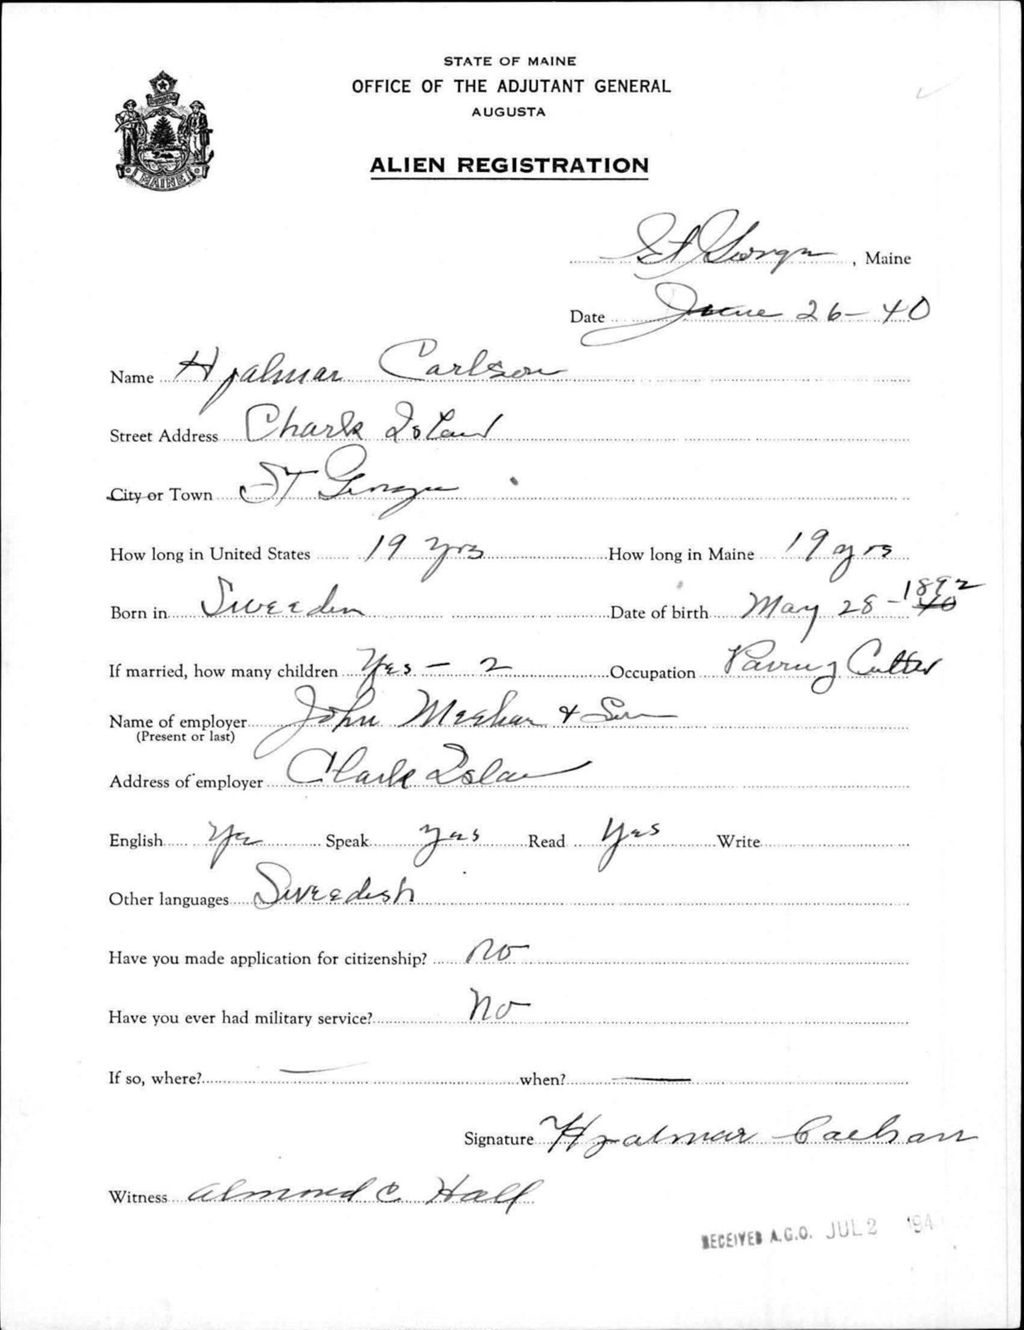 STATE OF MAINE
OFFICE OF THE ADJUTANT GENERAL
AUGUSTA
MAINE
ALIEN REGISTRATION
St George, Maine
Date June 26-40
Name Hjalmar Carlson
Street Address Chark Island
City or Town ST George
How long in United States 19 yrs How long in Maine 19 yrs
Born in Sweeden Date of birth May 28-1892 40
If married, how many children Yes - 2 Occupation Paving Cutter
Name of employer John Meehan & Son
(Present or last)
Address of employer Clark Islan
English Ye Speak yes Read Yes Write
Other languages Sweedish
Have you made application for citizenship? no
Have you ever had military service? No
If so, where? — when? —
Signature Hjalmar Carlson
Witness Almond C Hall
RECEIVED A.G.O. JUL 2 194